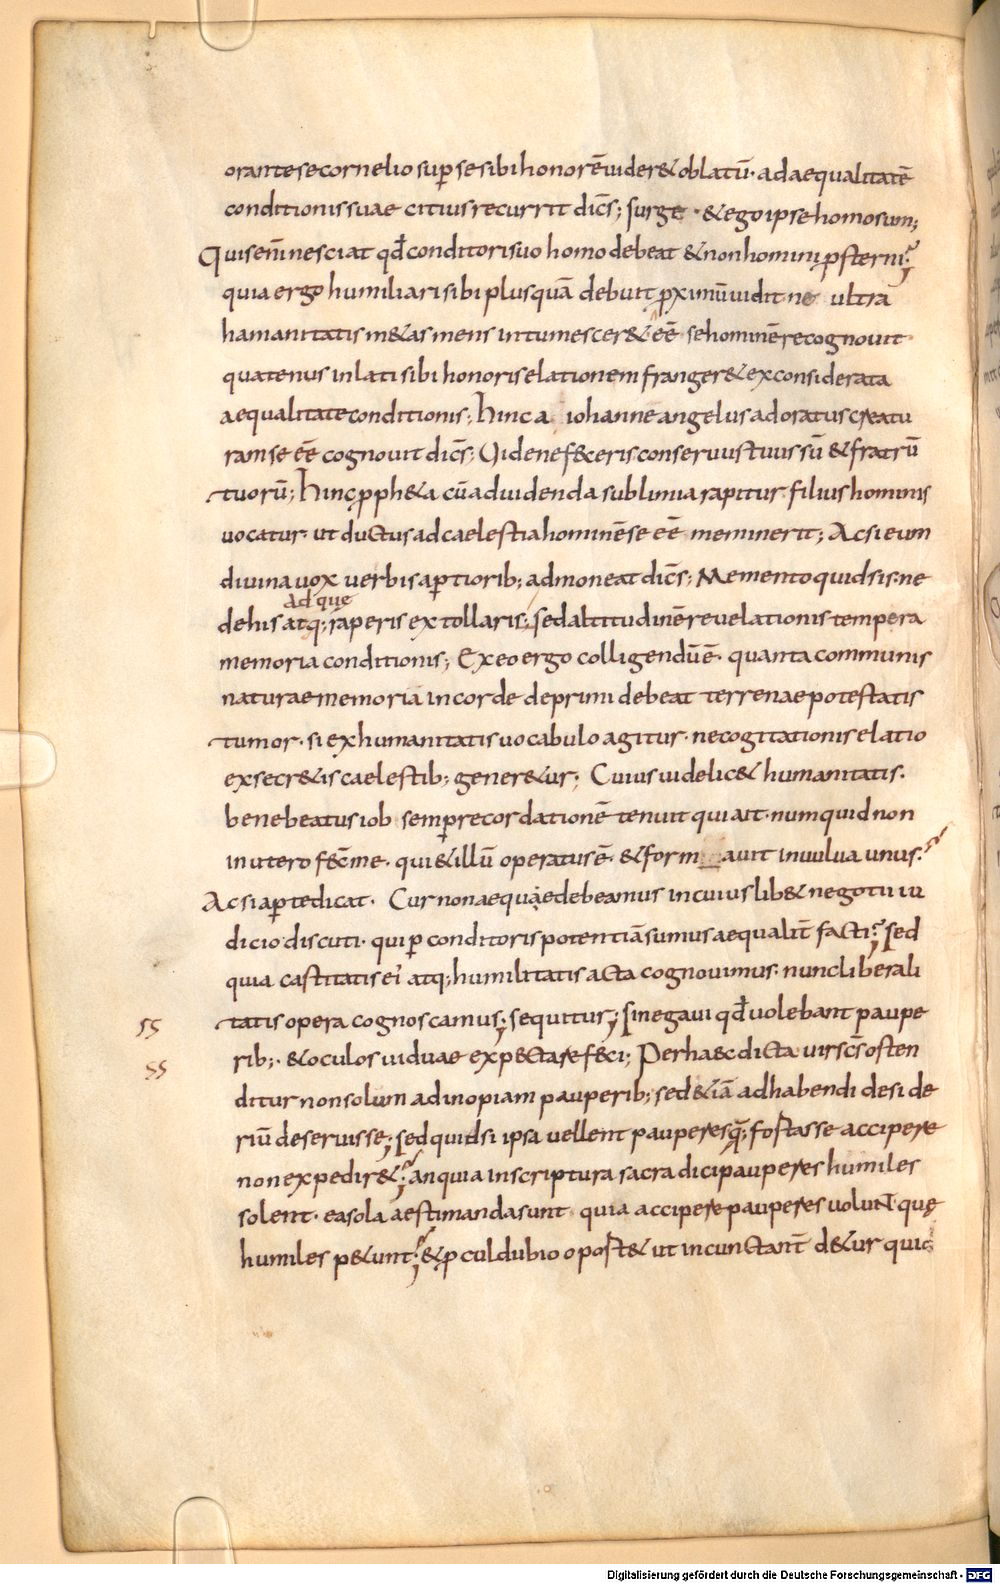 orante se cornelio sup se sibi honorē uider& oblatū· ad aequalitatē
conditionis suae citius recurrit dics̄; surge · & ego ipse homo sum;
Quis eni̅ nesciat qd̄ conditori suo homo debeat & non homini psterni?
quia ergo humiliari sibi plus quā debuit pximū uidit ne ultra
hamanitatis m&as mens intumescer& eē se hominē recognouit·
quatenus inlati sibi honoris elationem franger& ex considerata
aequalitate conditionis; hinc a iohanne angelus adoratus creatu
ram se eē cognouit dics̄; Uide ne feceris conseruus tuus sū & fratrū
tuorū; hinc pph&a cū ad uidenda sublimia rapitur· filius hominis
uocatur· ut ductus ad caelestia hominē se eē meminerit; Ac si eum
diuina uox uerbis aptiorib; admoneat dics̄; Memento quid sis· ne
ad que
de his atq; raperis extollaris; sed altitudinē reuelationis tempera
memoria conditionis; Ex eo ergo colligendū ē· quanta communis
naturae memoria in corde deprimi debeat terrenae potestatis
tumor· si ex humanitatis uocabulo agitur· ne cogitationis elatio
ex secr&is caelestib; gener&ur; Cuius uidelic& humanitatis·
bene beatus iob semp recordationē tenuit qui ait· numquid non
in utero fec̄ me· qui & illū operatus ē· & form auit in uulua unus?
Ac si apte dicat· Cur non aequae debeamus in cuiuslib& negotii iu
dicio discuti· qui p conditoris potentiā sumus aequalit̄ facti? sed
quia castitatis ei' atq; humilitatis acta cognouimus· nunc liberali
ss tatis opera cognoscamus; sequitur; si negaui qd̄ uolebant paupe
ss rib;· & oculos uiduae expectare feci; Per haec dicta uir scs̄ osten
ditur non solum ad inopiam pauperib; sed &iā ad habendi deside
riū deseruisse; sed quid si ipsa uellent pauperes q̄; fostasse accipere
non expedir&? an quia in scriptura sacra dici pauperes humiles
solent· ea sola aestimanda sunt quia accipere pauperes uoluNt que
humiles p&unt? & pcul dubio oport& ut incunctant̄ d&ur quic
Digitalisierung gefördert durch die Deutsche Forschungsgemeinschaft - DFG